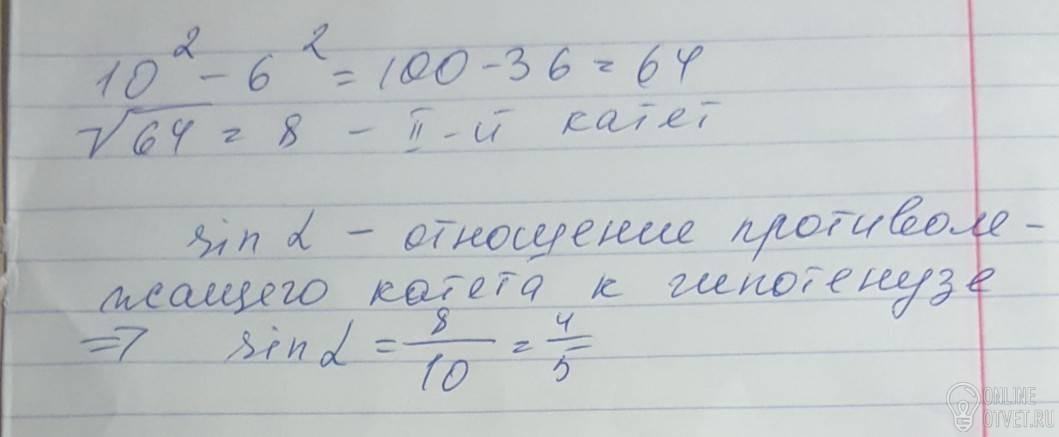 10² - 6² = 100 - 36 = 64
√64 = 8 - II-й катет
sin α - отношение противоле-
жащего катета к гипотенузе
=> sin α = 8/10 = 4/5
ONLINE
OTVET.RU